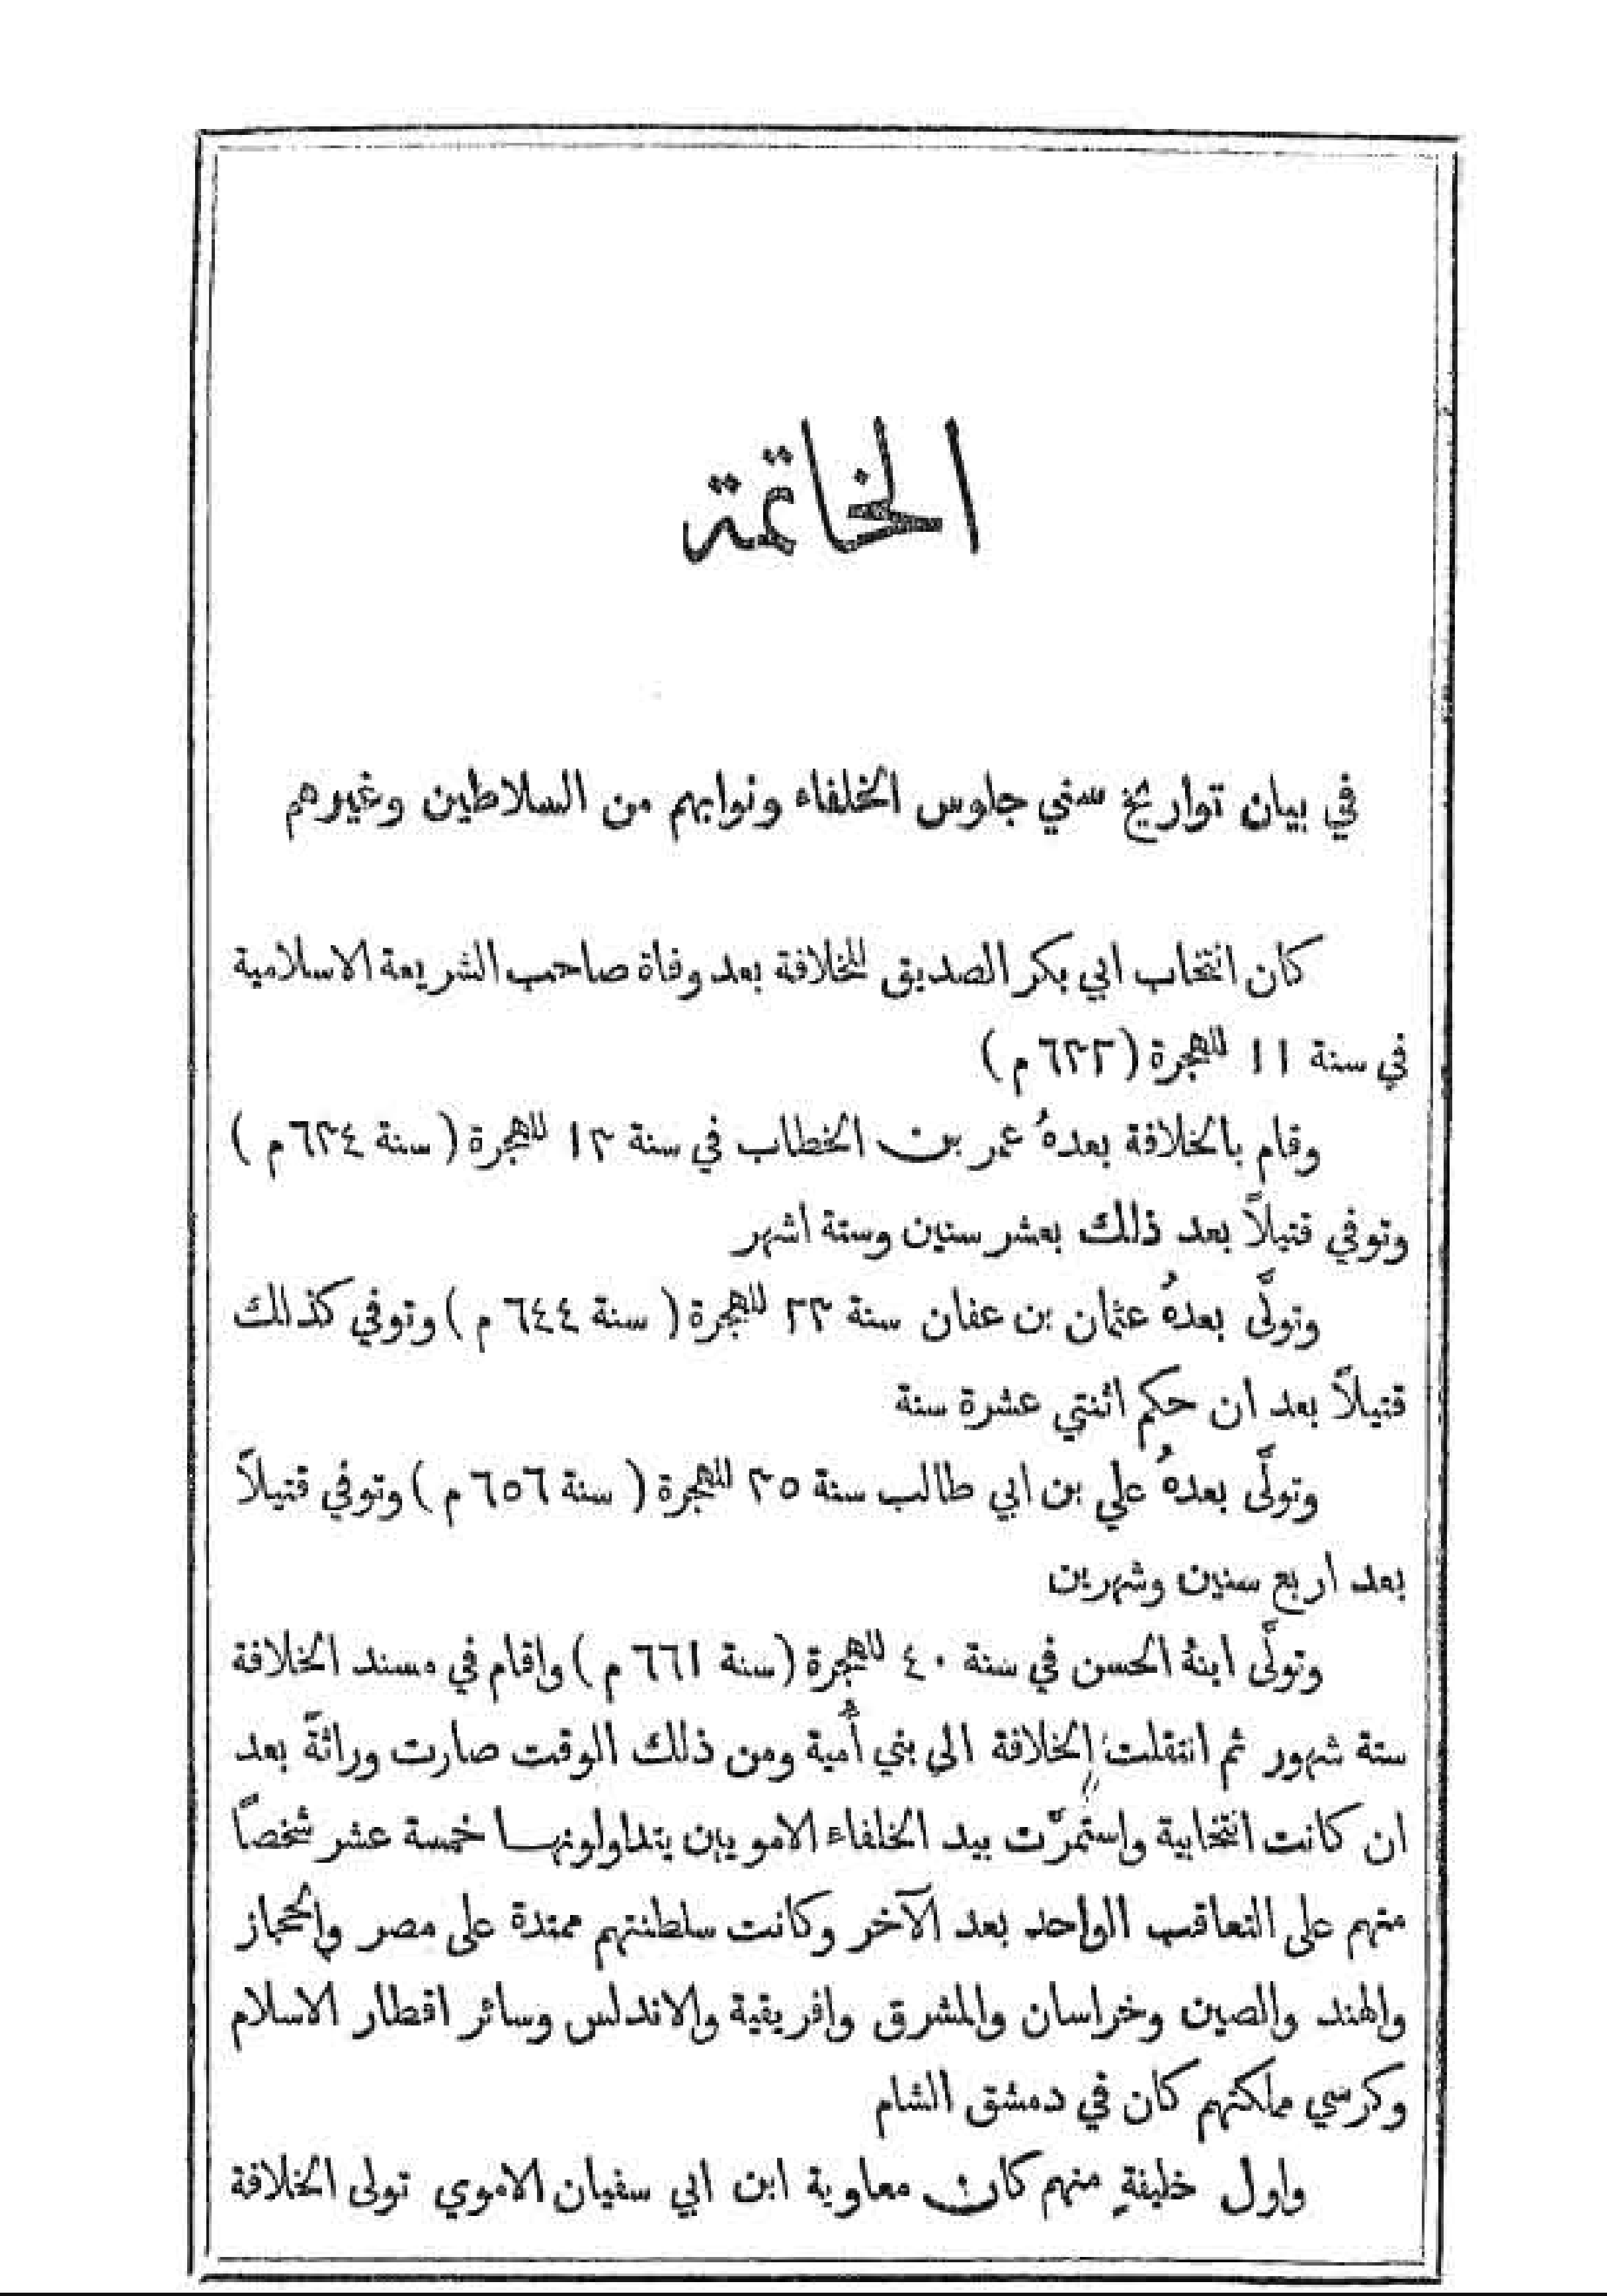 الخاتمة
في بيان تواريخ سني جلوس الخلفاء ونوابهم من السلاطين وغيرهم
كان انتخاب ابي بكر الصديق للخلافة بعد وفاة صاحب الشريعة الاسلامية
في سنة ١١ للهجرة (٦٣٢ م)
وقام بالخلافة بعدهُ عمر بن الخطاب في سنة ١٣ للهجرة ( سنة ٦٣٤ م )
وتوفي قتيلاً بعد ذلك بعشر سنين وستة اشهر
وتولَّى بعدهُ عثمان بن عفان سنة ٢٣ للهجرة ( سنة ٦٤٤ م ) وتوفي كذلك
قتيلاً بعد ان حكم اثنتي عشرة سنة
وتولَّى بعدهُ علي بن ابي طالب سنة ٣٥ للهجرة ( سنة ٦٥٦ م ) وتوفي قتيلاً
بعد اربع سنين وشهرين
وتولَّى ابنهُ الحسن في سنة ٤٠ للهجرة (سنة ٦٦١ م ) واقام في مسند الخلافة
ستة شهور ثم انتقلت الخلافة الى بني أُمية ومن ذلك الوقت صارت وراثةً بعد
ان كانت انتخابية واستمرَّت بيد الخلفاء الامويين يتداولونها خمسة عشر شخصاً
منهم على التعاقب الواحد بعد الآخر وكانت سلطنتهم ممتدة على مصر والحجاز
والهند والصين وخراسان والمشرق وافريقية والاندلس وسائر اقطار الاسلام
وكرسي مملكتهم كان في دمشق الشام
واول خليفةٍ منهم كان معاوية ابن ابي سفيان الاموي تولى الخلافة